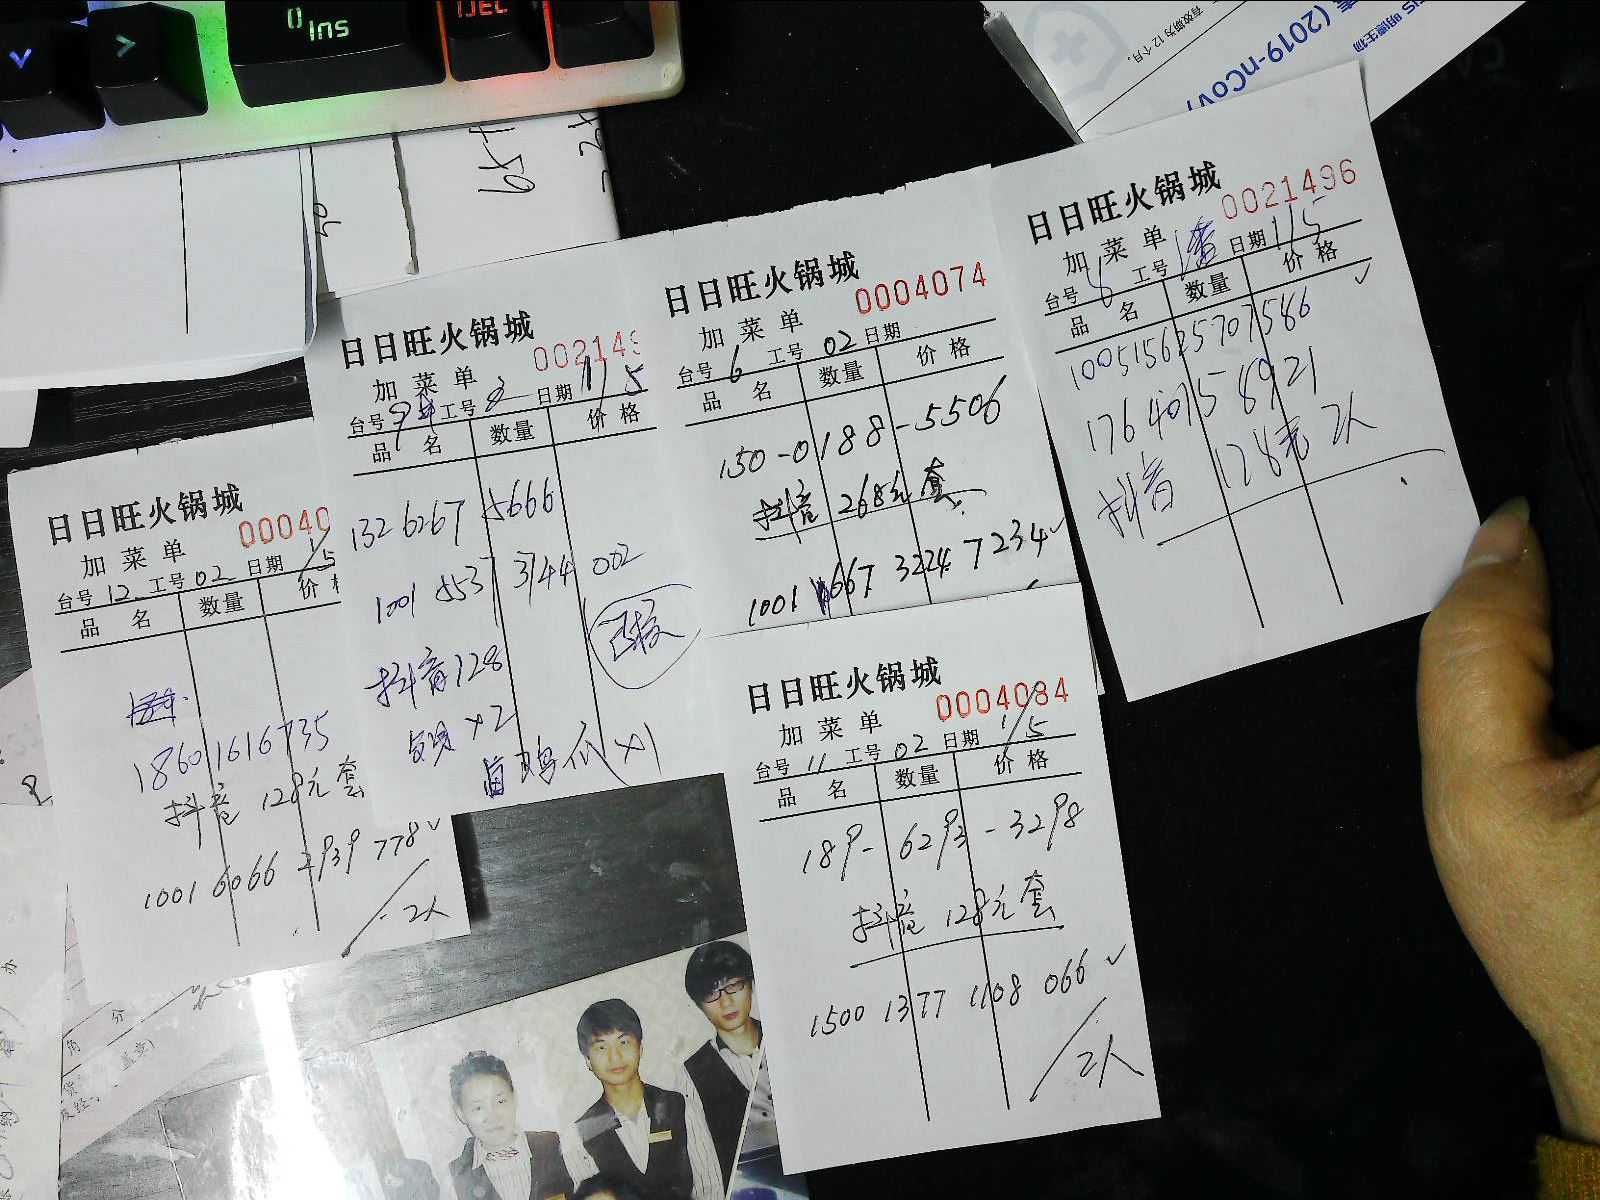 Ins
日日旺火锅城
00040
加菜单
台号 12 工号 02 日期 1/5
品名 数量 价
18601616735
抖音 128元套
1001 6066 2939 778✓
2人
日日旺火锅城
002149
加菜单
台号 工号 2 日期 11/5
品名 数量 价格
132 6267 5666
1001 5537 3144 002
抖音128
已核
×2
×1
日日旺火锅城
0004074
加菜单
台号 6 工号 02 日期
品名 数量 价格
150-0188-5506
抖音 268元套
1001 1667 3224 7234✓
日日旺火锅城
0021496
加菜单
台号 8 工号 潘 日期 11/5
品名 数量 价格
100515625707586 ✓
17640158921
抖音 128元 2人
日日旺火锅城
0004084
加菜单
台号 11 工号 02 日期 1/5
品名 数量 价格
189-6293-3298
抖音 128元套
1500 1377 1108 066 ✓
2人
(2019-nCoV)
明德生物
有效期为12个月。